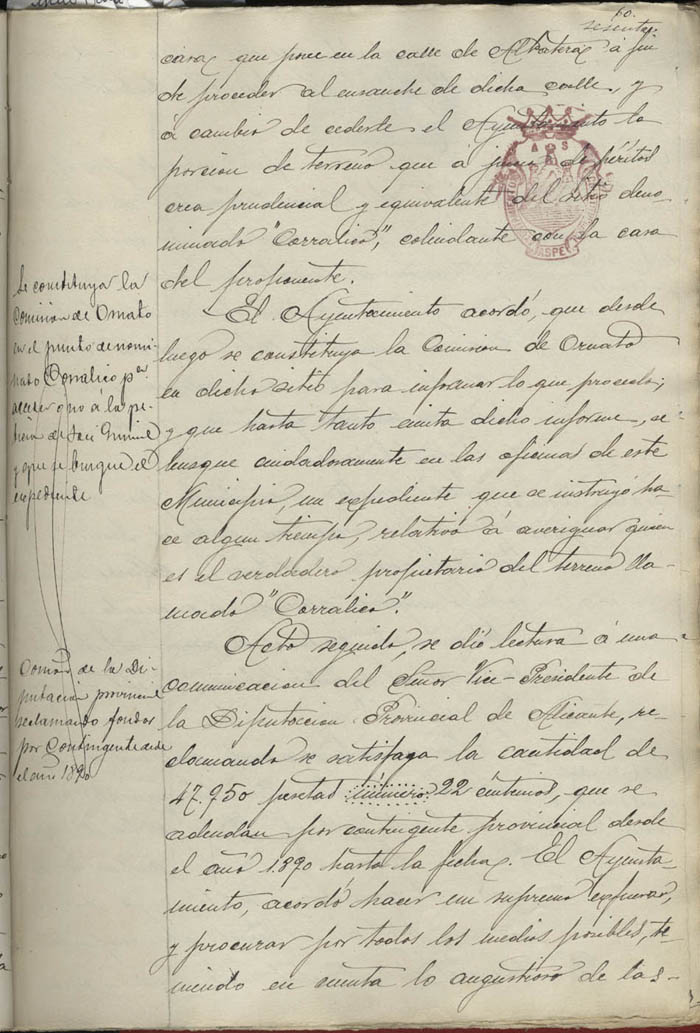 60.
sesenta.
casa, que posee en la calle de Albatera, á fin
de proceder al ensanche de dicha calle, y
á cambio de cederle el Ayuntamiento la
porcion de terreno que á juicio de péritos
crea prudencial y equivalente del sitio deno-
minado "Corralico", colindante con la casa
del proponente.
Se constituya la
Comision de Ornato
en el punto denomi-
nado Corralico pa
acceder ó no á la pe-
ticion de José
y que se busque el
expediente
El Ayuntamiento acordó, que desde
luego se constituya la Comision de Ornato
en dicho sitio para informar lo que proceda;
y que hasta tanto emita dicho informe, se
busque cuidadosamente en las oficinas de este
Municipio, un expediente que se instruyó ha-
ce algun tiempo, relativo á averiguar quien
es el verdadero propietario del terreno lla-
mado "Corralico".
Comon de la Di-
putacion provincial
reclamando fondos
por Contingente desde
el año 1890
Acto seguido, se dió lectura á una
comunicacion del Señor Vice-Presidente de
la Diputaccion Provincial de Alicante, re-
clamando se satisfaga la cantidad de
47.950 pesetas número 22 centimos, que se
adeudan por contingente provincial desde
el año 1890 hasta la fecha. El Ayunta-
miento, acordó hacer un supremo esfuerzo,
y procurar por todos los medios posibles, te-
niendo en cuenta lo angustioso de las
ASPE